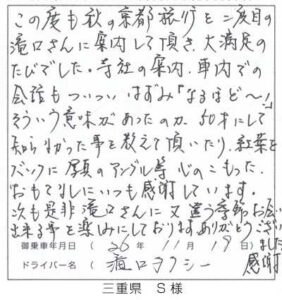 この度も秋の京都旅行を二度目の
滝口さんに案内して頂き、大満足の
たびでした。寺社の案内、車内での
会話もついついはずみ「なるほど〜!」
そういう意味があったのか、50才にして
知らなかった事を教えて頂いたり、紅葉を
バックに写真のアングル等、心のこもった
おもてなしにいつも感謝しています。
次も是非滝口さんに又違う季節お会い
出来る事を楽しみにしております。ありがとうござい
ました
感謝
御乗車年月日 ( 26 年 11 月 19 日)
ドライバー名 ( 滝口タクシー
三重県 S様